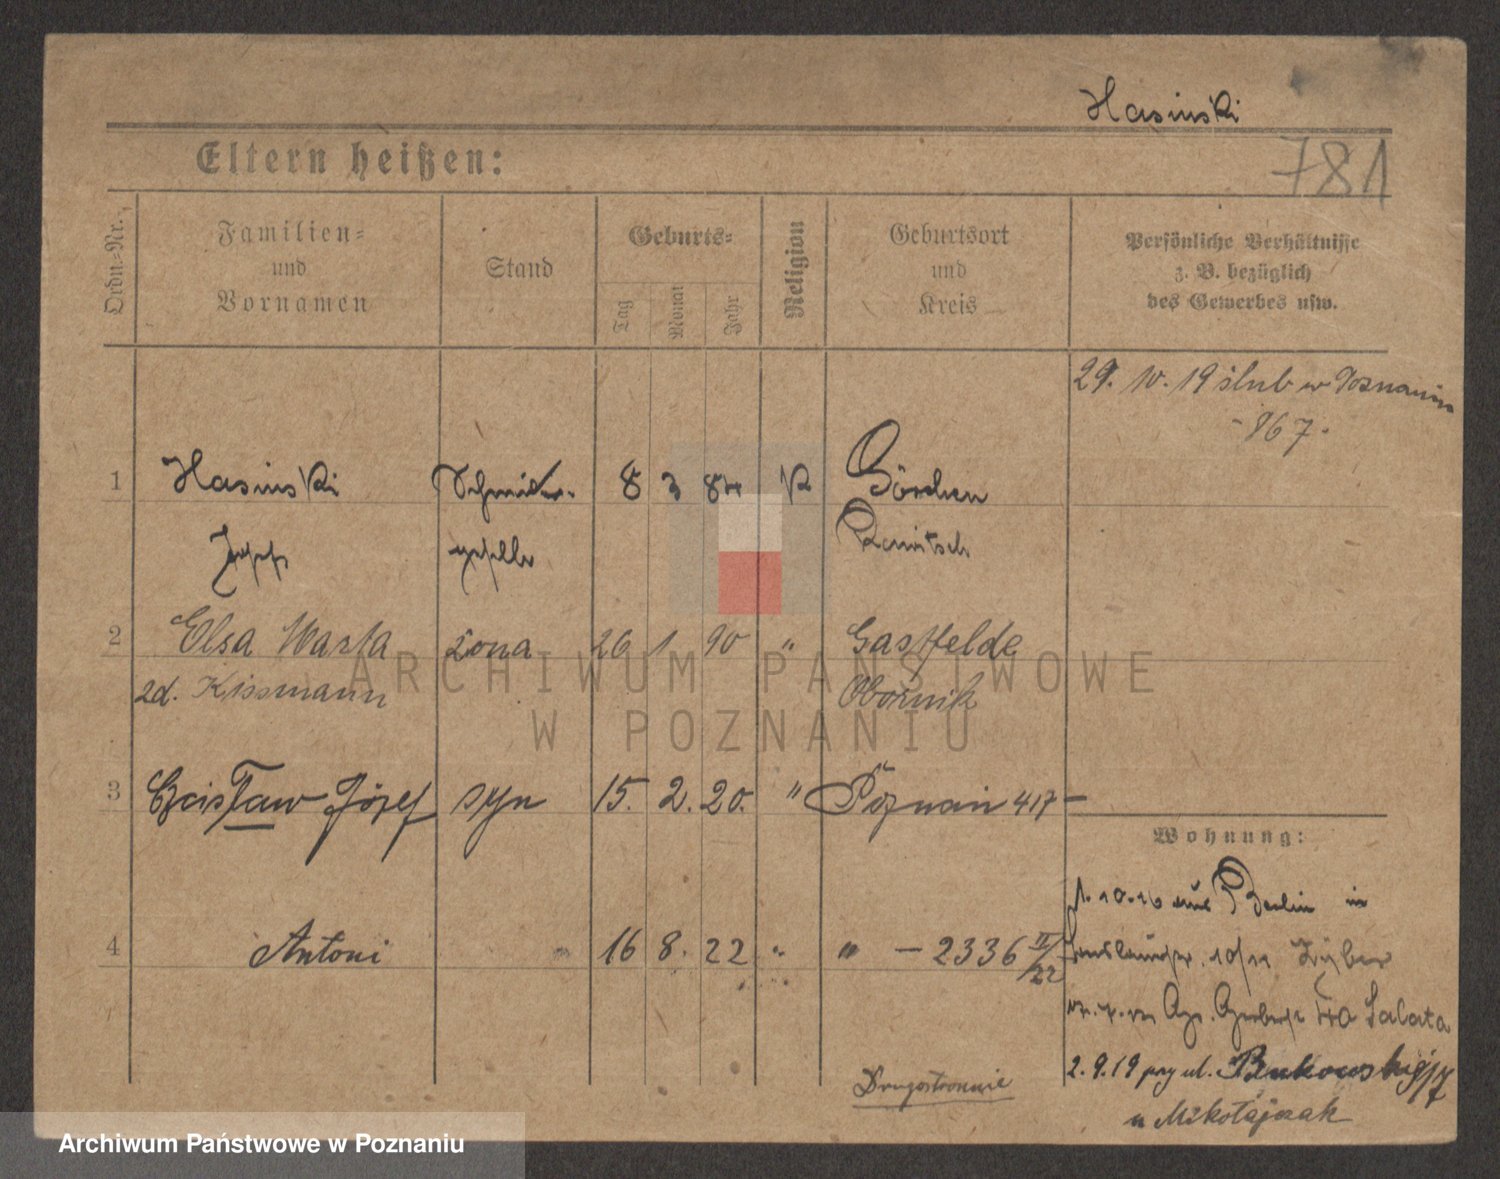 Hasinski
781
Eltern heißen:
Ordn.-Nr.
Familien-
und
Vornamen
Stand
Geburts-
Tag
Monat
Jahr
Religion
Geburtsort
und
Kreis
Persönliche Verhältnisse
z. B. bezüglich
des Gewerbes usw.
29. 10. 19 ślub w Poznaniu
- 867.
1 Hasinski Schmiede- 8 3 84 K Görchen
Josef geselle Rawitsch
2 Elsa Marta żona 26 1 90 " Gastfelde
zd. Kissmann Obornik
3 Czesław Józef syn 15. 2. 20. " Poznań 417 -
Wohnung:
1. 10. 16 aus Berlin in
4 Antoni 16 8. 22 " " - 2336 II/22
10/11
Salata
2. 9. 19 przy ul. Bukowskiej 7
u Mikołajczak
Drugostronnie
ARCHIWUM PAŃSTWOWE
W POZNANIU
Archiwum Państwowe w Poznaniu